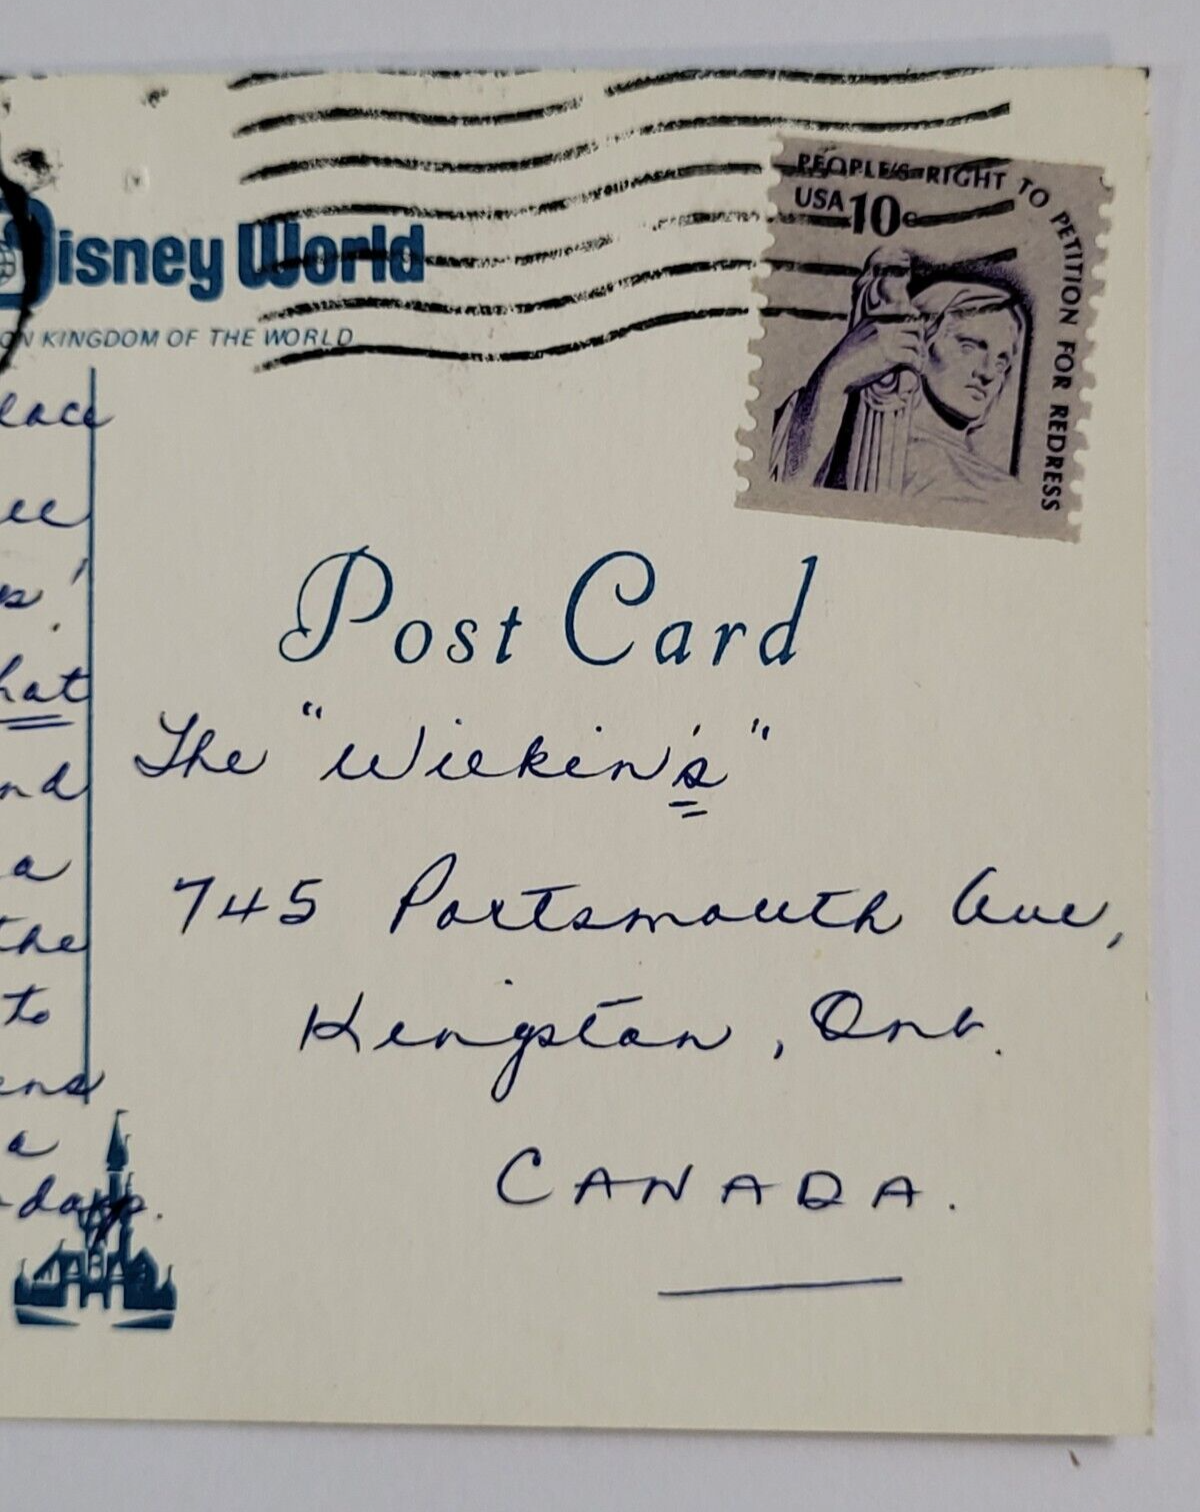 Disney World
KINGDOM OF THE WORLD
PEOPLE'S RIGHT TO PETITION FOR REDRESS
USA 10c
Post Card
The "Wilkin's"
745 Portsmouth Ave,
Kingston, Ont.
CANADA.
lace
ee
hat
nd
a
the
to
ens
a